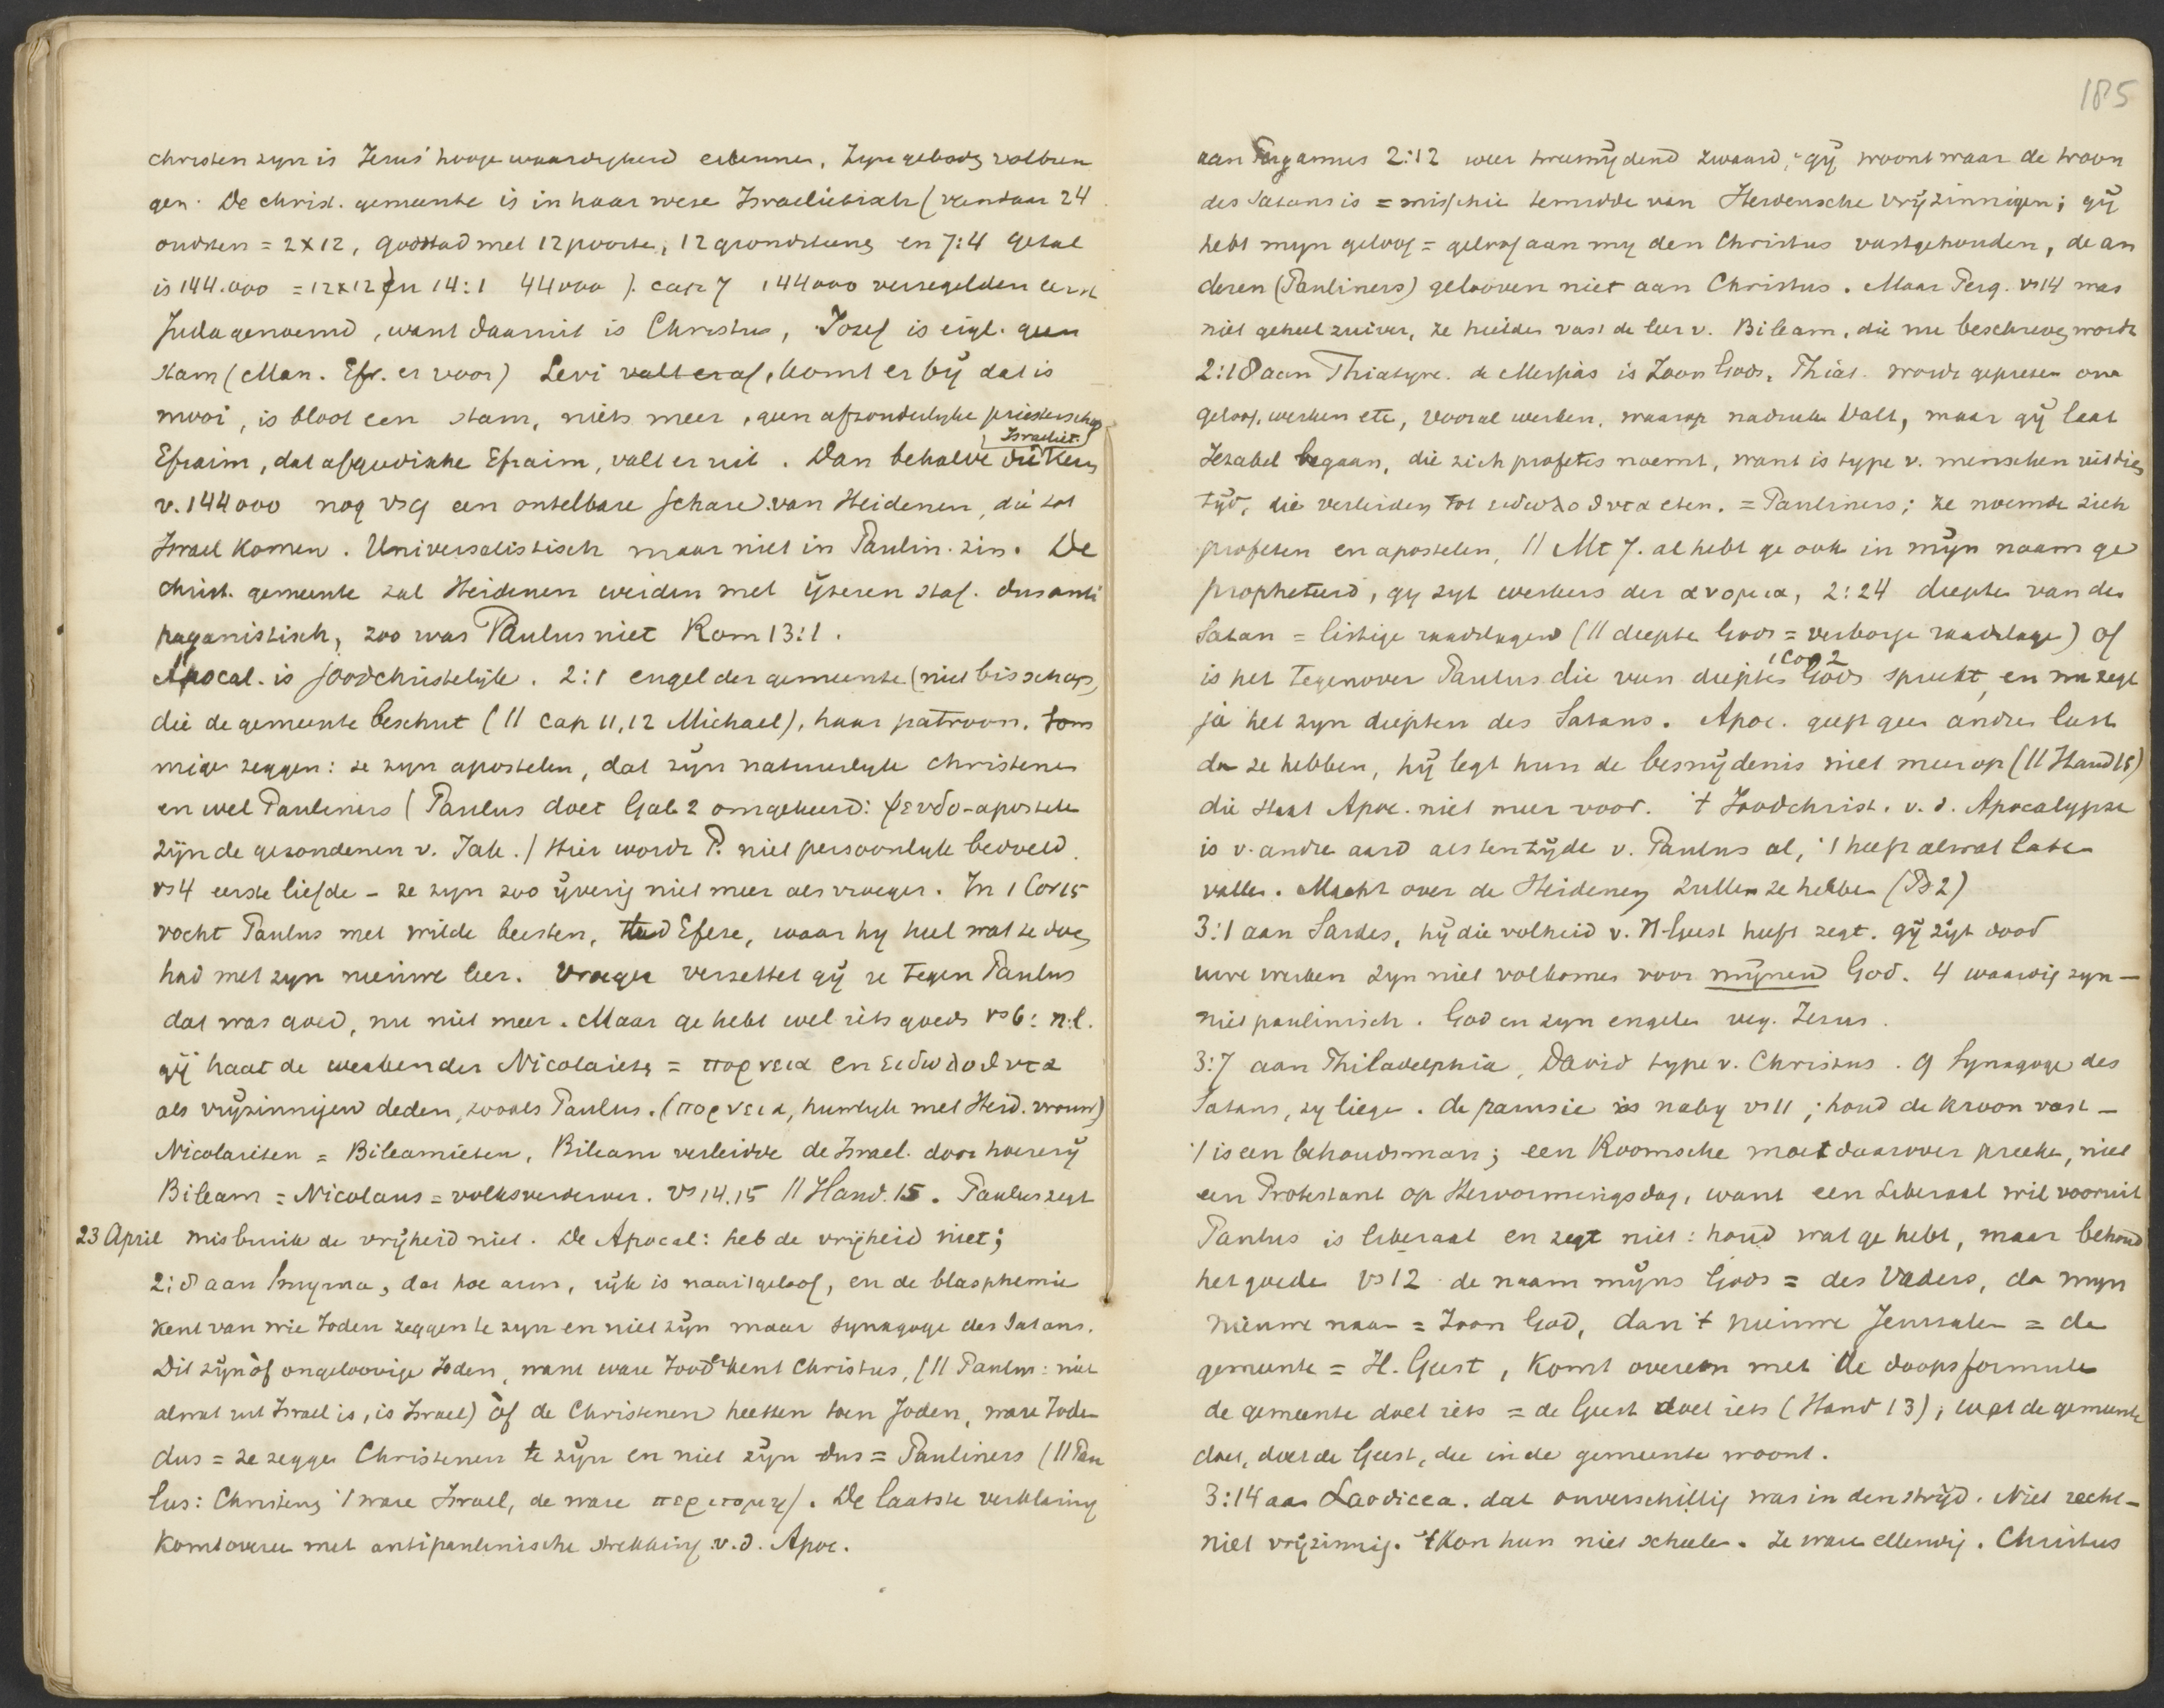 christen zyn is Jezus' hooge waardigheid erkennen, Zyn geboden volbren
gen. De christ. gemeente is in haar weze Israelietisch (vandaar 24
oudsten = 2x12, godstad met 12 poorten, 12 grondsteenen en 7:4 getal
is 144.000 = 12x12 en 14:1 44000). cap 7 144000 verzegelden eerst
Juda genoemd, want daaruit is Christus, Jozef is eigl. geen
stam (Man. Efr. er voor) Levi valt eraf, komt er bÿ dat is
mooi, is bloot een stam, niets meer, geen afzonderlyke priesterschap
Efraim, dat afgodische Efraim, valt er uit. Dan behalve die Israeliet. kern
v. 144000 nog vs 9 een ontelbare schare van Heidenen, die tot
Israel komen. Universalistisch maar niet in Paulin. zin. De
christ. gemeente zal Heidenen weiden met ÿzeren staf. dus anti
paganistisch, zoo was Paulus niet Rom 13:1.
Apocal. is joodchristelijk. 2:1 engel der gemeente (niet bisschop)
die de gemeente beschut (// cap 11,12 Michael), haar patroon. Som
mige zeggen: ze zyn apostelen, dat zÿn natuurlyk christenen
en wel Pauliners (Paulus doet Gal 2 omgekeerd: ψευδο-apostelen
zÿn de gezondenen v. Jak.) Hier wordt P. niet persoonlyk bedoeld.
vs 4 eerste liefde - ze zyn zoo ÿverig niet meer als vroeger. In 1 Cor 15
vocht Paulus met wilde beesten, Efeze, waar hy heel wat te doen
had met zyn nieuwe leer. Vroeger verzettet gÿ ze tegen Paulus
dat was goed, nu niet meer. Maar ge hebt wel iets goeds vs 6: n.l.
gÿ haat de werken der Nicolaieten = πορνεια en ειδωλοθυτα
als vrÿzinnigen deden, zooals Paulus. (πορνεια, huwlyk met Heid. vrouw)
Nicolaieten = Bileamieten, Bileam verleidde de Israel. door hoererÿ
Bileam = Nicolaus = volksverderver. vs 14.15 // Hand. 15. Paulus zegt
23 April misbruik de vrÿheid niet. De Apocal: heb de vrÿheid niet;
2:8 aan Smyrna, dat hoe arm, rÿk is naar 't geloof, en de blasphemie
kent van wie Joden zeggen te zyn en niet zÿn maar synagoge des Satans.
Dit zÿn òf ongeloovige Joden, want ware Jood erkent Christus, (// Paulus: niet
alwat uit Israel is, is Israel) òf de Christenen heetten toen Joden, ware Joden
dus = ze zeggen Christenen te zÿn en niet zÿn dus = Pauliners (// Pau
lus: Christenen 't ware Israel, de ware περιτομη). De laatste verklaring
komt overeen met antipaulinische strekking v.d. Apoc.
185
aan Pergamus 2:12 weer tweesnÿdend zwaard, gÿ woont waar de troon
des Satans is = misschien temidde van Heidensche vrÿzinnigen; gÿ
hebt myn geloof = geloof aan my den Christus vastgehouden, de an
deren (Pauliners) gelooven niet aan Christus. Maar Perg. vs 14 was
niet geheel zuiver, ze hielden vast de leer v. Bileam, die nu beschreven wordt
2:18 aan Thiatyre. de Messias is Zoon Gods, Thiat. wordt geprezen om
geloof, werken etc, vooral werken, waarop nadruk valt, maar gÿ laat
Jezabel begaan, die zich profetes noemt, want is type v. menschen uit dien
tÿd, die verleiden tot ειδωλοθυτα eten. = Pauliners; ze noemde zich
profeten en apostelen, // Mt 7. al hebt ge ook in mÿn naam ge
propheteerd, gy zyt werkers der ανομια, 2:24 diepten van den
Satan = listige raadslagen (// diepte Gods = verborge raadslage) of
is het tegenover Paulus die van diepten Gods 1 Cor 2 spreekt, en nu zegt
ja het zyn diepten des Satans. Apoc. geeft geen andren last
dan ze hebben, hÿ legt hun de besnÿdenis niet meer op (// Hand 15)
die staat Apoc. niet meer voor. 't Joodchrist. v. d. Apocalypse
is v. andre aard als ten tÿde v. Paulus al, 't heeft al wat laten
vallen. Macht over de Heidenen zullen ze hebben (Ps 2)
3:1 aan Sardes, hÿ die volheid v. H. Geest heeft zegt. gÿ zÿt dood
uwe werken zyn niet volkomen voor mÿnen God. 4 waardig zyn -
niet paulinisch. God en zyn engelen verg. Jezus.
3:7 aan Philadelphia, David type v. Christus. 9 Synagoge des
Satans, zy liegen. de parusie is naby vs 11; houd de kroon vast -
't is een behoudsman; een Roomsche moet daarover preeken, niet
een Protestant op Hervormingsdag, want een liberaal wil vooruit
Paulus is liberaal en zegt niet: houd wat ge hebt, maar behoud
het goede vs 12 de naam mÿns Gods = des Vaders, dan myn
nieuwe naam = Zoon God, dan 't nieuwe Jeruzalem = de
gemeente = H. Geest, komt overeen met de doopsformule
de gemeente doet iets = de Geest doet iets (Hand 13); wat de gemeente
doet, doet de Geest, die in de gemeente woont.
3:14 aan Laodicea. dat onverschillig was in den strÿd. Niet recht-
niet vrÿzinnig. 't Kon hun niet scheelen. Ze waren ellendig. Christus